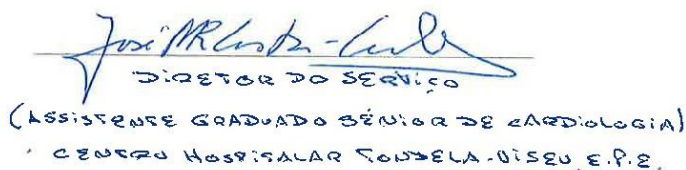 José
DIRETOR DO SERVIÇO
(ASSISTENTE GRADUADO SÉNIOR DE CARDIOLOGIA)
CENTRO HOSPITALAR TONDELA-VISEU E.P.E.